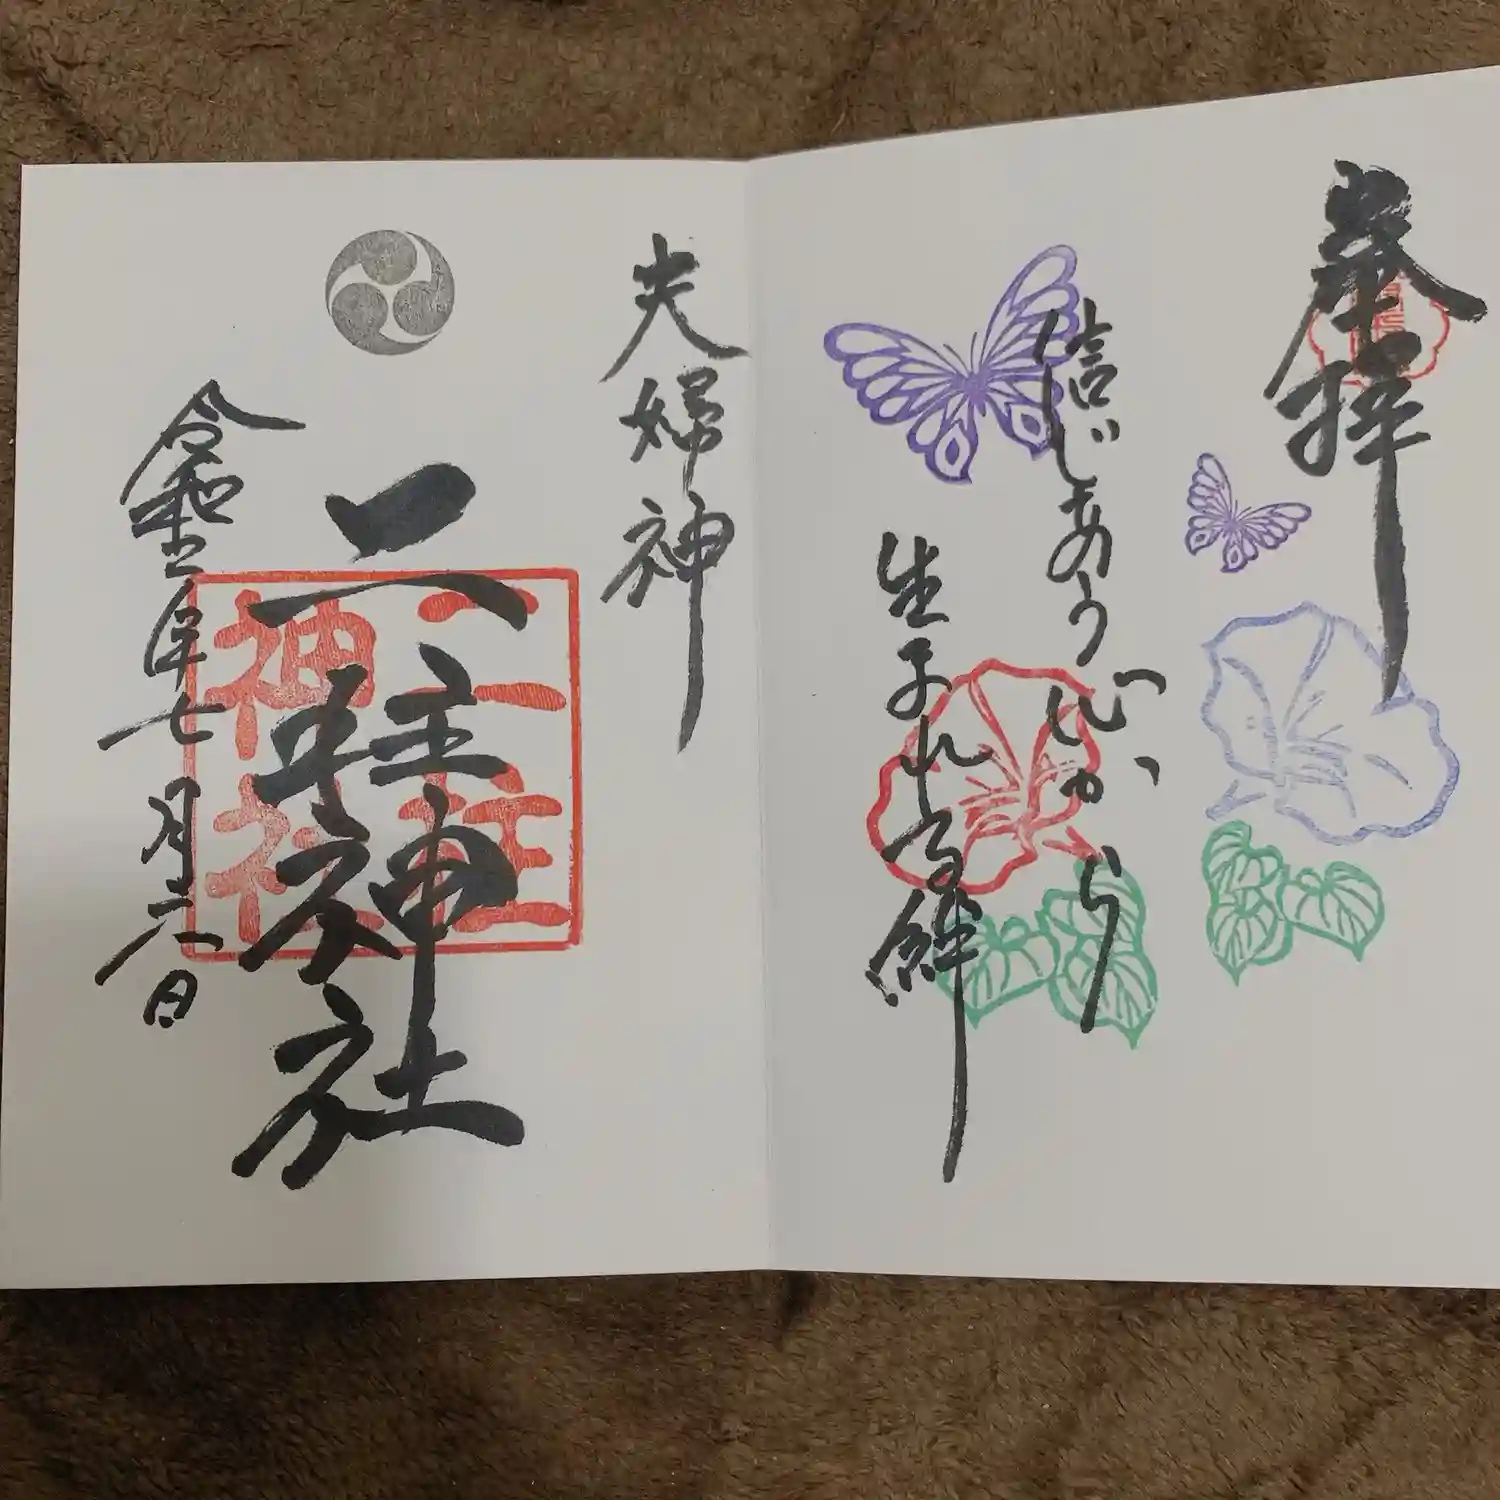 奉拝
信じあう心から
生まれる絆
夫婦神
二柱神社
二柱
神社
令和五年七月二六日